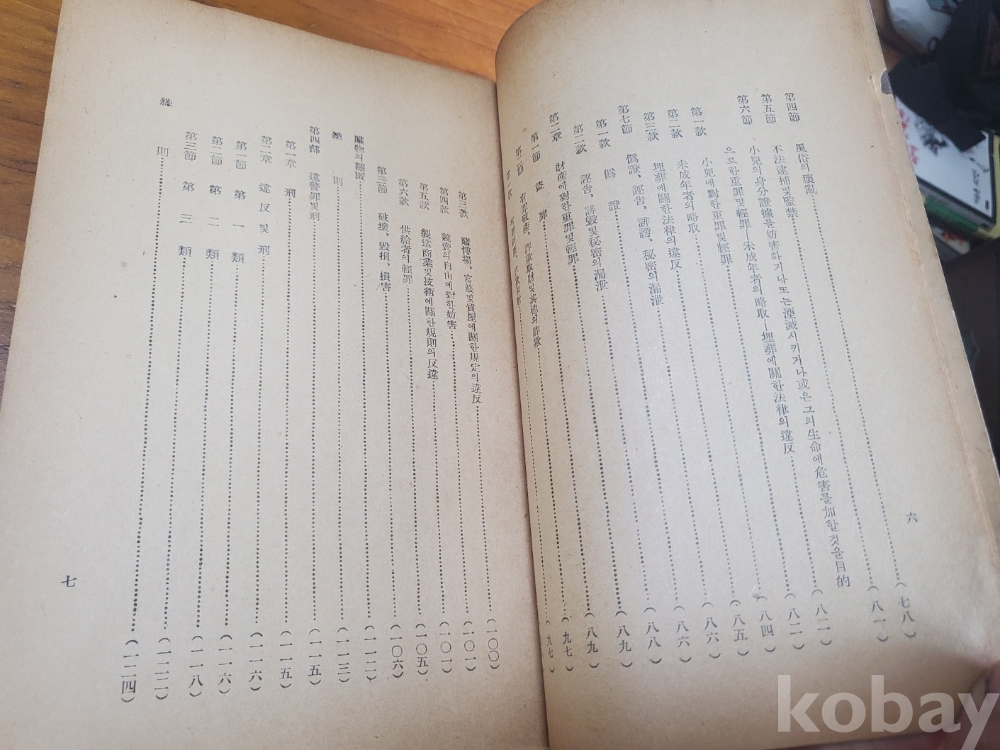 風俗의壞亂 (七八)
第四節 不法逮捕및監禁 (八一)
第五節 小兒의身分證據를妨害하거나또는湮滅시키거나或은그의生命에危害를加한것을目的
으로한重罪및輕罪—未成年者의略取—埋葬에關한法律의違反 (八二)
第六節 小兒에對한重罪및輕罪 (八二)
第一款 小兒에對한重罪및輕罪 (八四)
第二款 未成年者의略取 (八五)
第三款 埋葬에關한法律의違反 (八六)
第七節 僞證、誣告、誹謗、秘密의漏泄 (八八)
第一款 僞證 (八九)
第二款 誣告、誹毀및秘密의漏泄 (八九)
第二章 財産에對한重罪및輕罪 (九七)
第一節 盜罪 (九七)
六
第三款 賭博場、富籤및質屋에關한規定의違反 (一〇〇)
第四款 競賣의自由에對한妨害 (一〇一)
第五款 製造商業및技術에關한規則의反違 (一〇一)
第六款 供給者의輕罪 (一〇五)
第三節 破壞、毀損、損害 (一〇六)
贓物의隱匿 (一一二)
總則 (一一三)
第四部 違警罪및刑 (一一五)
第一章 刑 (一一五)
第二章 違反및刑 (一一六)
第一節 第一類 (一一六)
第二節 第二類 (一一八)
第三節 第三類 (一二二)
總則 (一二四)
七
kobay